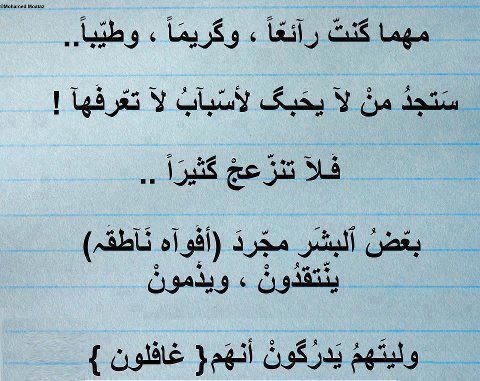 ©Mohamed Moataz
مهما گنتّ رآئعّاً ، وگريمَاً ، وطيّباً..
سَتجدُ منْ لآ يحَبگ لأسّبآبُ لآ تعّرفهآ !
فـلآ تنزّعجْ گثيرَاً ..
بعّضُ ٱلبشَر مجّردَ (أفوآه نَآطقَہ)
ينّتقدُونْ ، ويذَمونْ
وليتَهمُ يَدرُگونْ أنهَم{ غافلون }